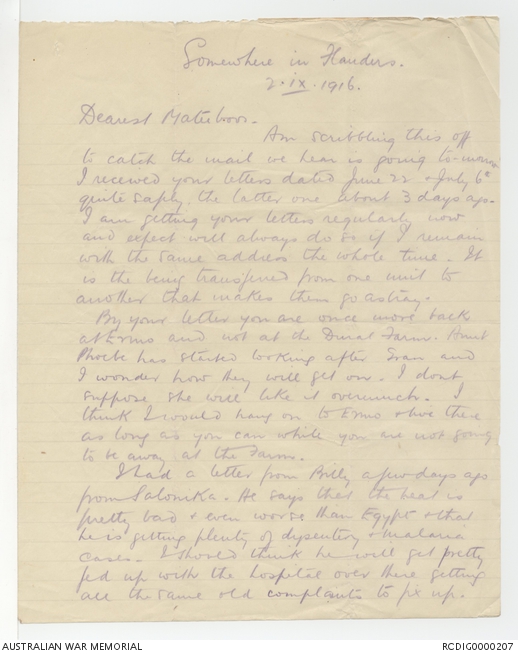 Somewhere in Flanders.
2.ix.1916.
Dearest
Am scribbling this off
to catch the mail we hear is going to-morrow
I received your letters dated June 22 & July 6th
quite safely, the latter one about 3 days ago.
I am getting your letters regularly now
and expect will always do so if I remain
with the same address the whole time. It
is the being transferred from one unit to
another that makes them go astray.
By your letter you are once more back
at and not at the Farm. Aunt
Phoebe has started looking after and
I wonder how they will get on. I dont
suppose she will like it overmuch. I
think I would hang on to & live there
as long as you can while you are not going
to be away at the Farm.
I had a letter from Billy a few days ago
from Salonika. He says that the heat is
pretty bad & even worse than Egypt & that
he is getting plenty of dysentery & malaria
cases. I should think he will get pretty
fed up with the hospital over there getting
all the same old complaints to fix up.
AUSTRALIAN WAR MEMORIAL
RCDIG0000207